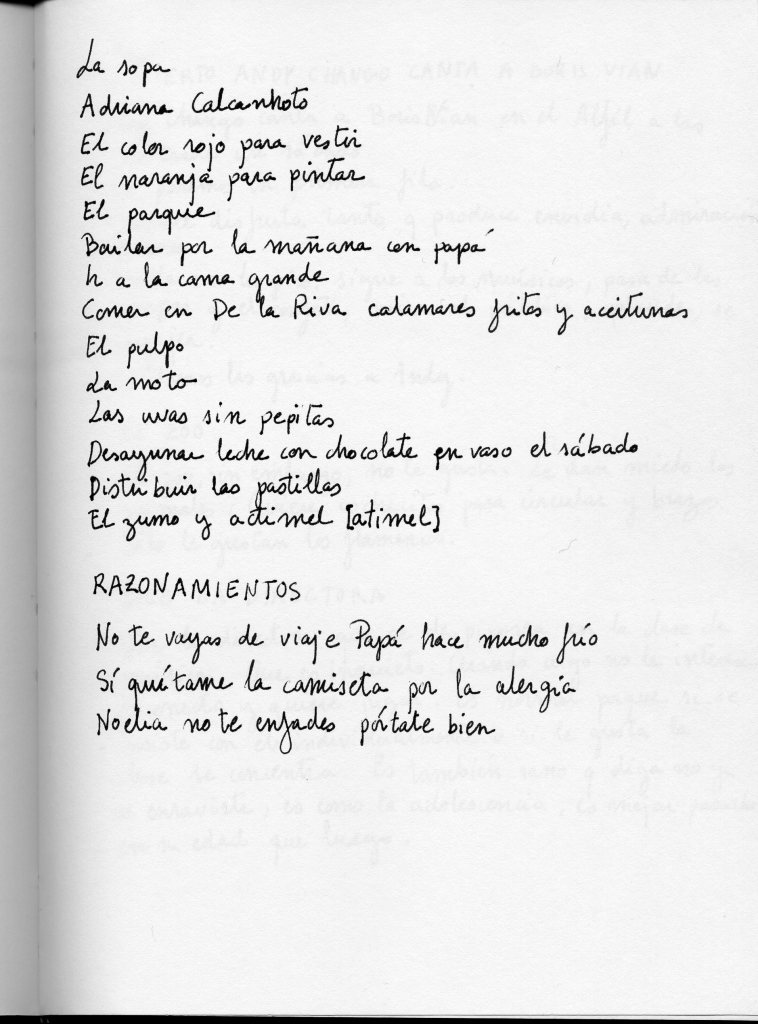 La sopa
Adriana Calcanhoto
El color rojo para vestir
El naranja para pintar
El parque
Bailar por la mañana con papá
Ir a la cama grande
Comer en De la Riva calamares fritos y aceitunas
El pulpo
La moto
Las uvas sin pepitas
Desayunar leche con chocolate en vaso el sábado
Distribuir las pastillas
El zumo y actimel [atimel]
RAZONAMIENTOS
No te vayas de viaje Papá hace mucho frío
Sí quítame la camiseta por la alergía
Noelia no te enfades pórtate bien